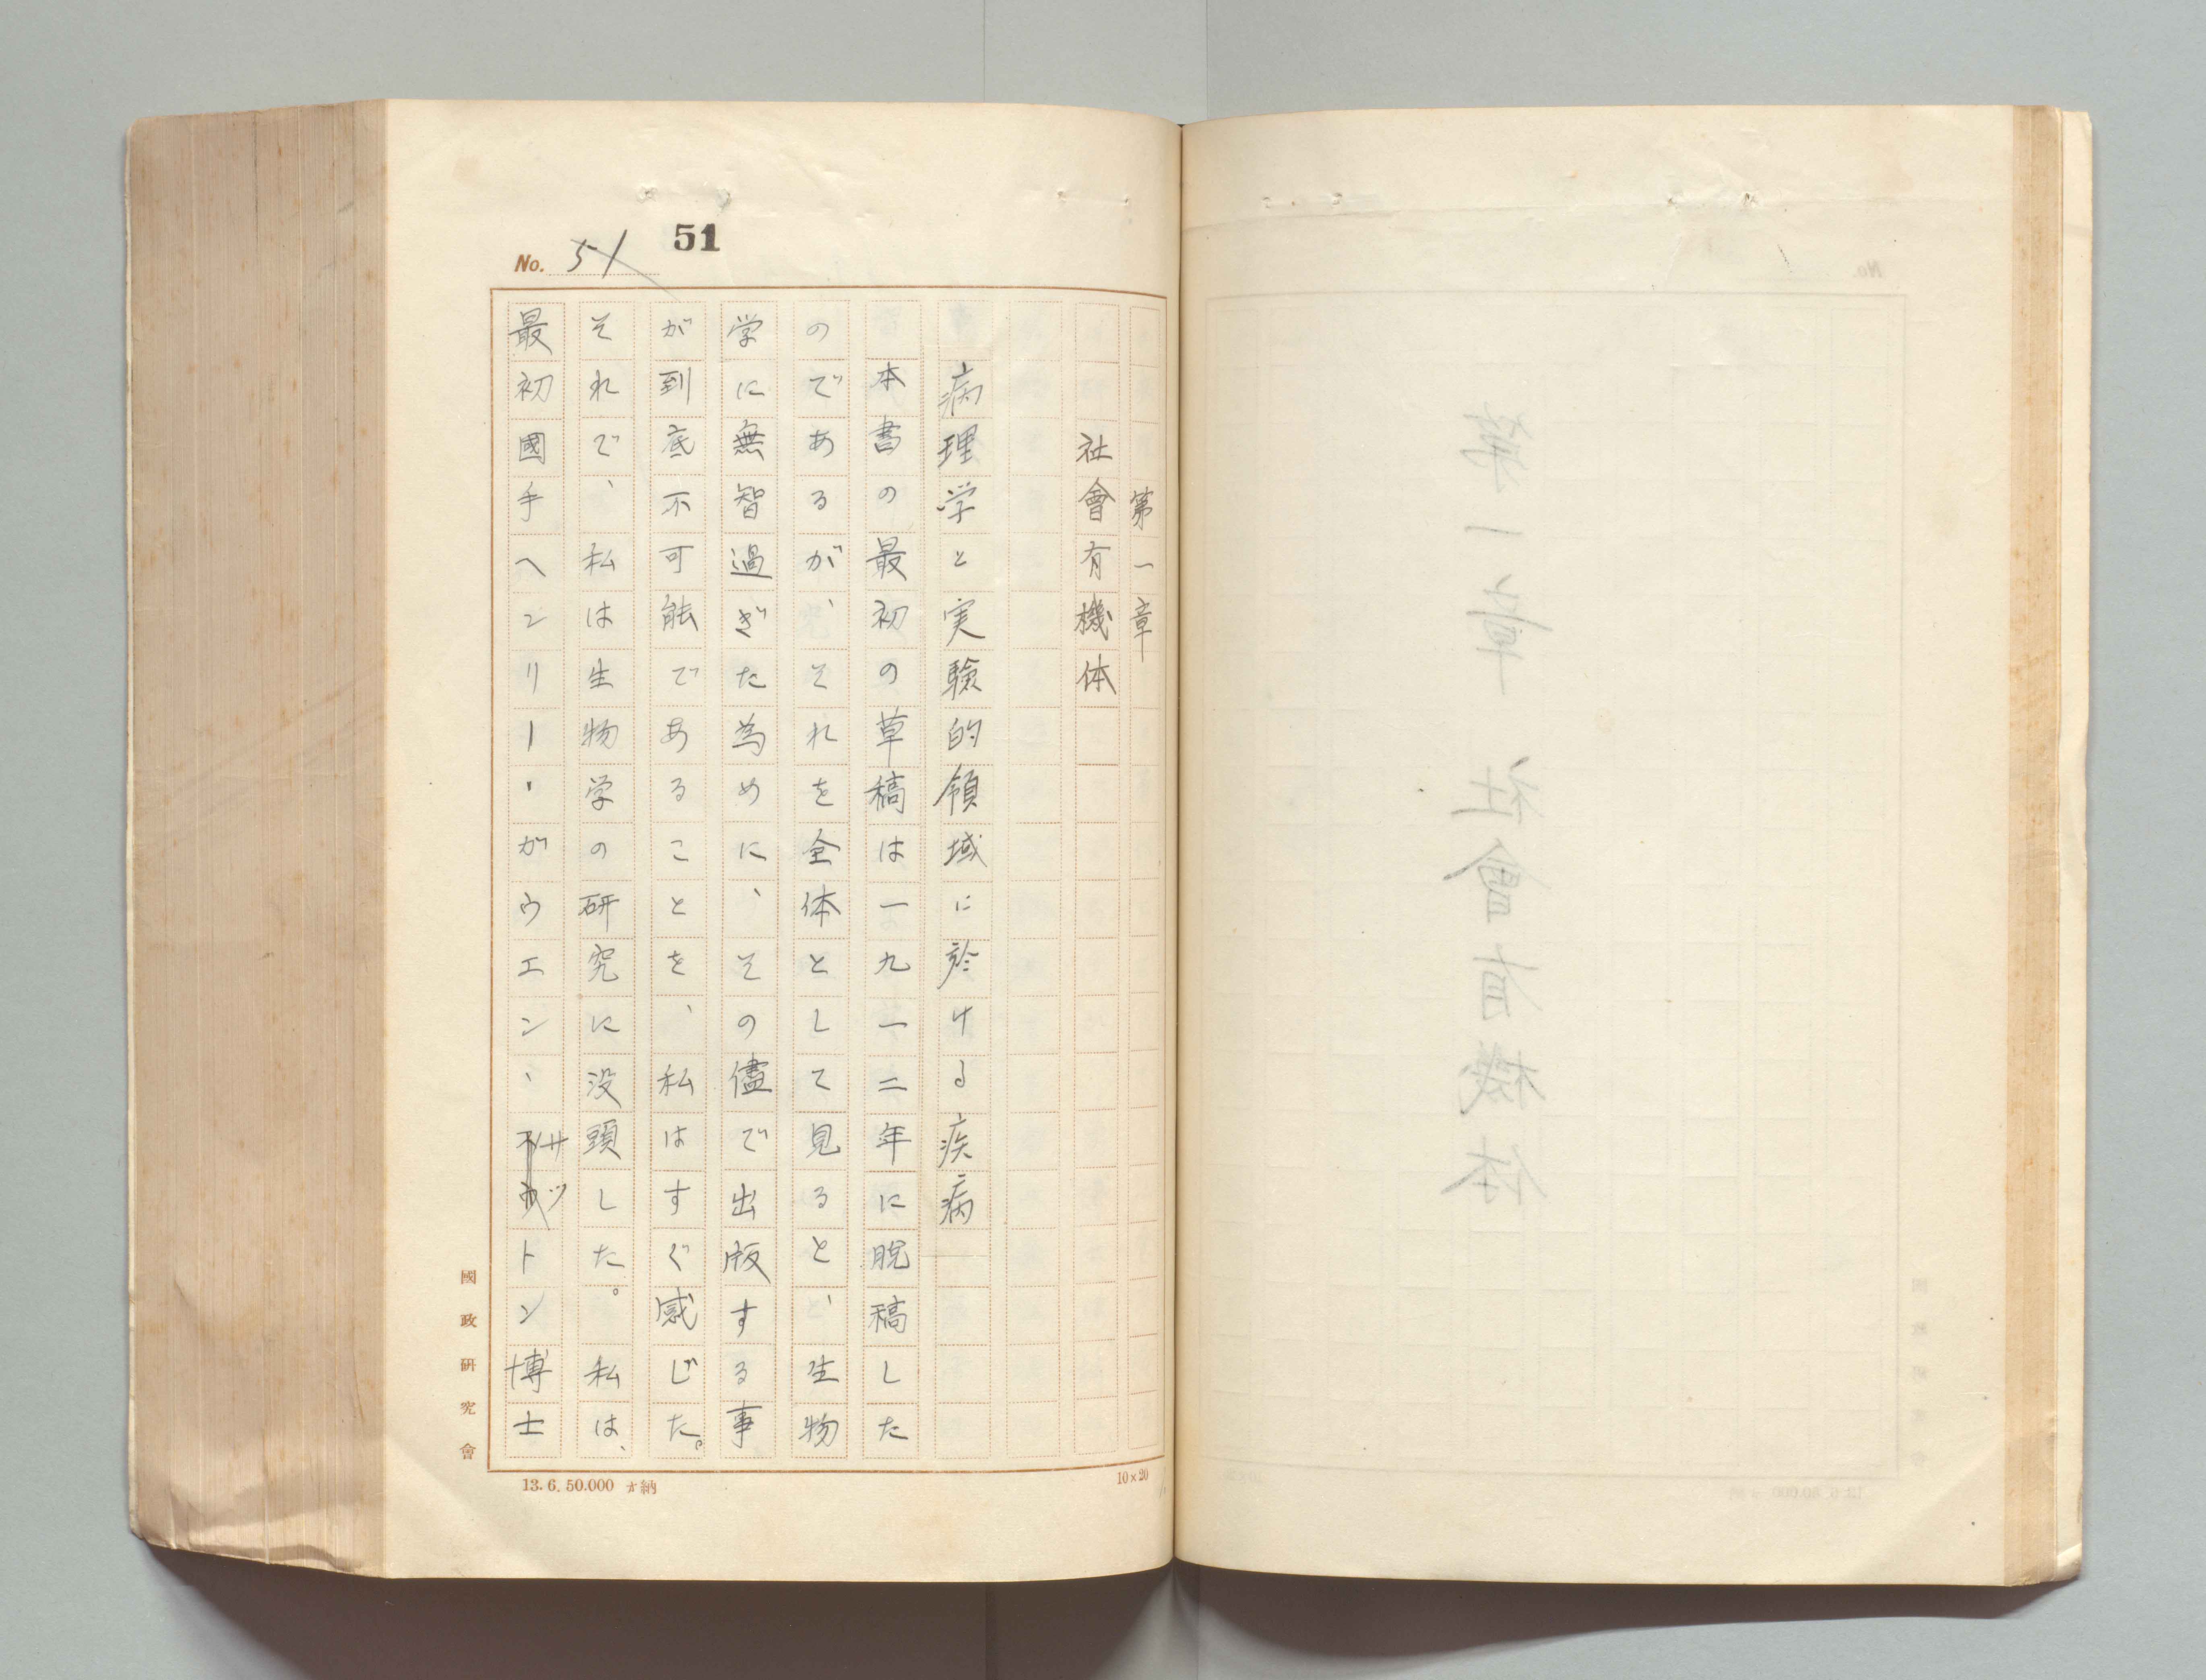 第一章　社會有機体
51
No. 51
第一章
社會有機体
病理学と実験的領域に於ける疾病
本書の最初の草稿は一九一二年に脱稿した
のであるが、それを全体として見ると、生物
学に無智過ぎた為めに、その儘で出版する事
が到底不可能であることを、私はすぐ感じた。
それで、私は生物学の研究に没頭した。私は、
最初國手ヘンリー・ガウエン、サットン博士
國政研究會
13.6.50.000 カ納
10×20